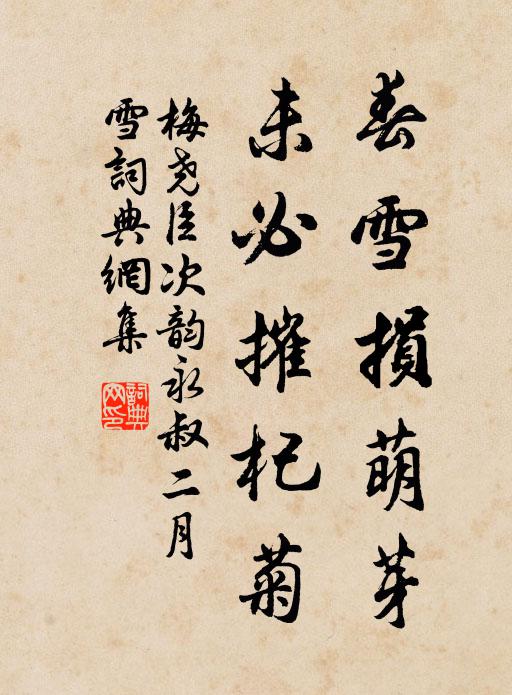 春雪損萌芽
未必摧杞菊
梅堯臣次韵永叔二月
雪詞典網集
詞典网印